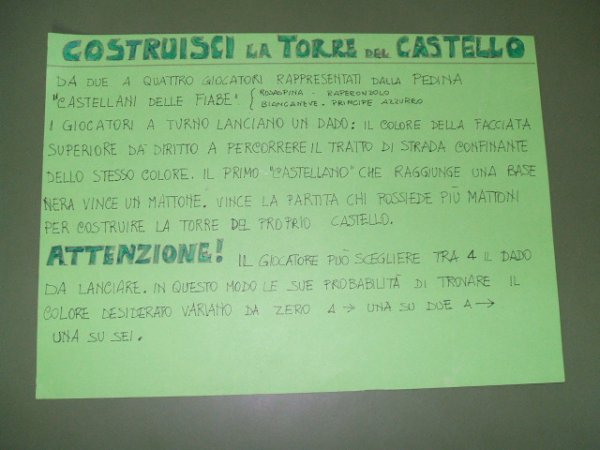 COSTRUISCI LA TORRE DEL CASTELLO
DA DUE A QUATTRO GIOCATORI RAPPRESENTATI DALLA PEDINA
"CASTELLANI DELLE FIABE" { ROSASPINA - RAPERONZOLO
BIANCANEVE - PRINCIPE AZZURRO
I GIOCATORI A TURNO LANCIANO UN DADO: IL COLORE DELLA FACCIATA
SUPERIORE DA' DIRITTO A PERCORRERE IL TRATTO DI STRADA CONFINANTE
DELLO STESSO COLORE. IL PRIMO "CASTELLANO" CHE RAGGIUNGE UNA BASE
NERA VINCE UN MATTONE. VINCE LA PARTITA CHI POSSIEDE PIÙ MATTONI
PER COSTRUIRE LA TORRE DEL PROPRIO CASTELLO.
ATTENZIONE! IL GIOCATORE PUÒ SCEGLIERE TRA 4 IL DADO
DA LANCIARE. IN QUESTO MODO LE SUE PROBABILITÀ DI TROVARE IL
COLORE DESIDERATO VARIANO DA ZERO A → UNA SU DUE A →
UNA SU SEI.